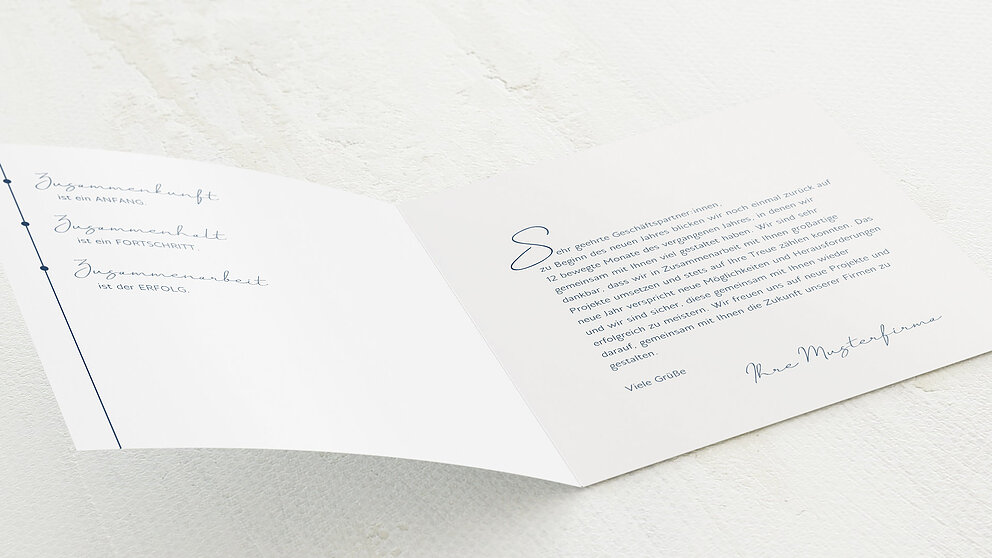 Zusammenkunft
ist ein ANFANG.
Zusammenhalt
ist ein FORTSCHRITT.
Zusammenarbeit
ist der ERFOLG.
Sehr geehrte Geschäftspartner:innen,
zu Beginn des neuen Jahres blicken wir noch einmal zurück auf
12 bewegte Monate des vergangenen Jahres, in denen wir
gemeinsam mit Ihnen viel gestaltet haben. Wir sind sehr
dankbar, dass wir in Zusammenarbeit mit Ihnen großartige
Projekte umsetzen und stets auf Ihre Treue zählen konnten. Das
neue Jahr verspricht neue Möglichkeiten und Herausforderungen
und wir sind sicher, diese gemeinsam mit Ihnen wieder
erfolgreich zu meistern. Wir freuen uns auf neue Projekte und
darauf, gemeinsam mit Ihnen die Zukunft unserer Firmen zu
gestalten.
Viele Grüße
Ihre Musterfirma